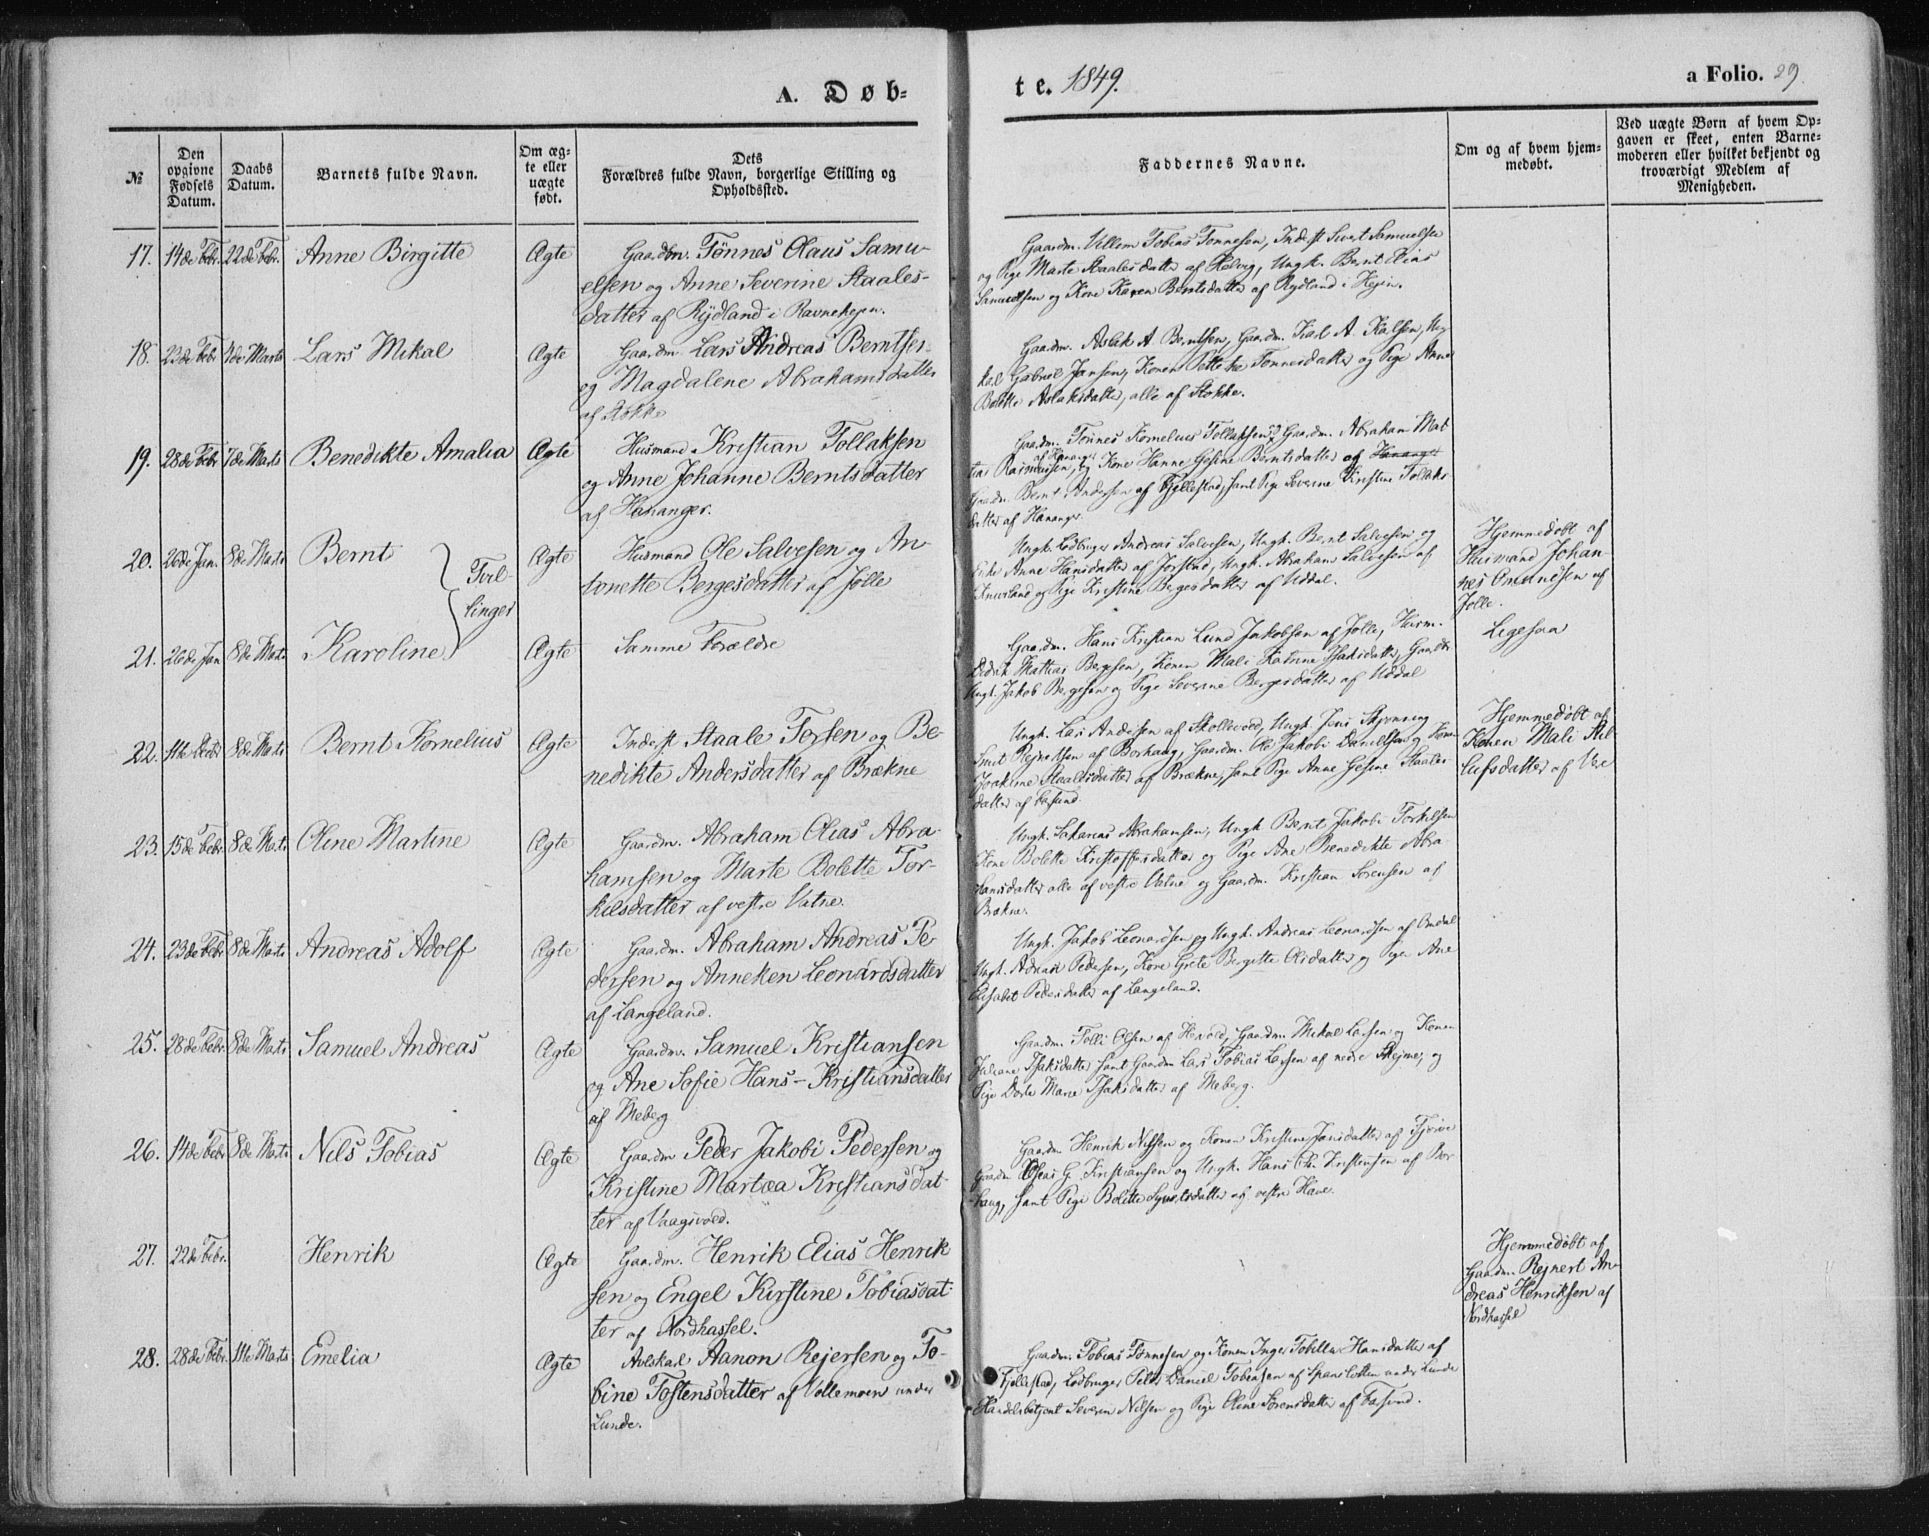 A. Døb-
te. 1849.
a Folio. 29.
№
Den opgivne Fødsels Datum.
Daabs Datum.
Barnets fulde Navn.
Om ægte eller uægte født.
Dets Forældres fulde Navn, borgerlige Stilling og Opholdssted.
Faddernes Navne.
Om og af hvem hjemmedøbt.
Ved uægte Børn af hvem Opgaven er skeet, enten Barnemoderen eller hvilket bekjendt og troværdigt Medlem af Menigheden.
17. 14de Febr. 22de Febr. Anne Birgitte Ægte
Gaardm. Tönnes Olaus Samu-
elsen og Anne Severine Staales-
datter af Rydland i Ravnehejen.
Gaardm. Villem Tobias Tønnesen, Inderst Sivert Samuelsen
og Pige Marte Staalesdatter af Helvig, Ungk. Bernt Elias
Samuelsen og Kone Karen Berntsdatter af Rydland i Hejen.
18. 23de Febr. 4de Marts Lars Mikal Ægte
Gaardm. Lars Andreas Berntsen
og Magdalene Abrahamsdatter
af Stokke
Gaardm. Aslak A. Berntsen, Gaardm. Karl A. Kalsen,
Gabriel Jansen, Konen Tønnesdatter og Pige Anne
Bolette Aslaksdatter, alle af Stokke.
19. 28de Febr. 7de Marts Benedikte Amalia Ægte
Husmand Kristian Tollaksen
og Anne Johanne Berntsdatter
af Hananger.
Gaardm. Tønnes Kornelius Tollaksen og Gaardm. Abraham Mat-
tias Rasmussen, af Hananger og Kone Hanne Gesine Berntsdatter af Hananger
Gaardm. Bernt Andersen af Fjellestad, samt Pige Severine Kristine Tollaks-
datter af Hananger.
20. 26de Jan. 8de Marts Bernt Ægte
Tvil-
linger
Husmand Ole Salvesen og An-
tonette Bergesdatter af Jölle
Ungk. Lodbruger Andreas Salvesen, Ungk. Bernt Salvesen og
Anne Hansdatter af Jorstad, Ungk. Abraham Salvesen af
og Pige Kristine Bergesdatter af Uddal.
Hjemmedöbt af
Husmand Johan-
nes Omundsen af
Jölle.
21. 26de Jan. 8de Marts Karoline Ægte
Samme Forældre
Gaardm. Hans Kristian Lund Jakobsen af Jölle, Husm.
Didrik Mattias Bergesen, Konen Mali Katrine Isaksdatter,
Ungk. Jakob Bergesen og Pige Severine Bergesdatter af Uddal
Ligesaa
22. 8de Marts Bernt Kornelius Ægte
Inderst Staale Torsen og Be-
nedikte Andersdatter af Brækne
Ungk. Lars Andersen af Skollevold, Ungk. Jens Skjenning
Smit Rejnertsen af Borhaug, Gaardm. Ole Jakobi Danielsen og Kone
Joakime Staalesdatter af Brækne, samt Pige Anne Gesine Staales-
datter af Farsund.
Hjemmedöbt af
Konen Mali
datter af Vere
23. 15de Febr. 8de Marts Oline Martine Ægte
Gaardm. Abraham Olias Abra-
hamsen og Marte Bolette Tor-
kilsdatter af vestre Vatne.
Ungk. Sakarias Abrahamsen, Ungk. Bernt Jakobi Torkilsen
Kone Bolette Kristoffersdatter og Pige Ane Benedikte Abra-
hamsdatter alle af vestre Vatne og Gaardm. Kristian Sørensen af
Brækne.
24. 23de Febr. 8de Marts Andreas Adolf Ægte
Gaardm. Abraham Andreas Pe-
dersen og Anneken Leonardsdatter
af Langeland.
Ungk. Jakob Leonardsen og Ungk. Andreas Leonardsen af Omdal
Ungk. Adrian Pedersen, Kone Grete Bergitte Olsdatter og Pige Ane
Elisabet Pedersdatter af Langeland.
25. 28de Febr. 8de Marts Samuel Andreas Ægte
Gaardm. Samuel Kristiansen
og Ane Sofie Hans-Kristiansdatter
af Meberg
Gaardm. Tolli Olsen af Hervold, Gaardm. Mikal Larsen og Konen
Juliane Isaksdatter samt Gaardm. Lars Tobias Larsen af nedre Skejme, og
Pige Dorte Marie Isaksdatter af Meberg.
26. 14de Febr. 8de Marts Nils Tobias Ægte
Gaardm Peder Jakobi Pedersen og
Kristine Martæa Kristiansdat-
ter af Vaagsvold.
Gaardm Henrik Nilsen og Konen Kristine Jansdatter af Tjörve
Gaardm G. Kristiansen og Ungk. Hans Chr. Kristensen af Bor-
haug, samt Pige Bolette Syvertsdatter af vestre Have.
27. 22de Febr. Henrik Ægte
Gaardm. Henrik Elias Henrik-
sen og Engel Kirstine Tobiasdat-
ter af Nordhassel.
Hjemmedöbt af
Gaardm. Rejnert An-
dreas Henriksen af
Nordhassel
28. 28de Febr. 11te Marts Emelia Ægte
Avlskarl Aanon Rejersen og To-
bine Tostensdatter af Vollemoen under
Lunde.
Gaardm. Tobias Tønnesen og Konen Inger Tobilla Hansdatter af
Fjellestad, Lodbruger Peder Daniel Tobiasen af Spanslotten under Lunde
Handelsbetjent Severin Nilsen og Pige Oline Sørensdatter af Farsund.